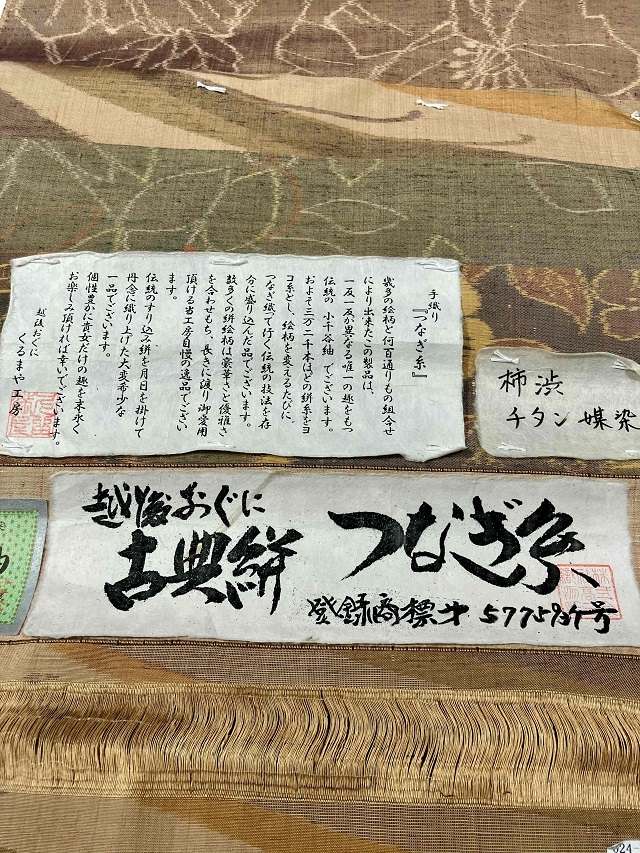 手織り
『つなぎ糸』
幾多の絵柄と何百通りもの組合せ
により出来たこの製品は、
一反一反が異なる唯一の趣をもつ
伝統の 小千谷紬 でございます。
およそ三万二千本ほどの絣糸をヨ
コ糸とし、絵柄を変えるたびに、
つなぎ織って行く伝統の技法を存
分に盛り込んだ品でございます。
数多くの絣絵柄は豪華さと優雅さ
を合わせもち、長きに渡り御愛用
頂ける当工房自慢の逸品でござい
ます。
伝統のすり込み絣を月日を掛けて
丹念に織り上げた大変希少な
一品でございます。
個性豊かに貴女だけの趣を末永く
お楽しみ頂ければ幸いでございます。
越後おぐに
くるまや工房
柿渋
チタン媒染
越後おぐに
古典絣
つなぎ糸
登録商標
号
024